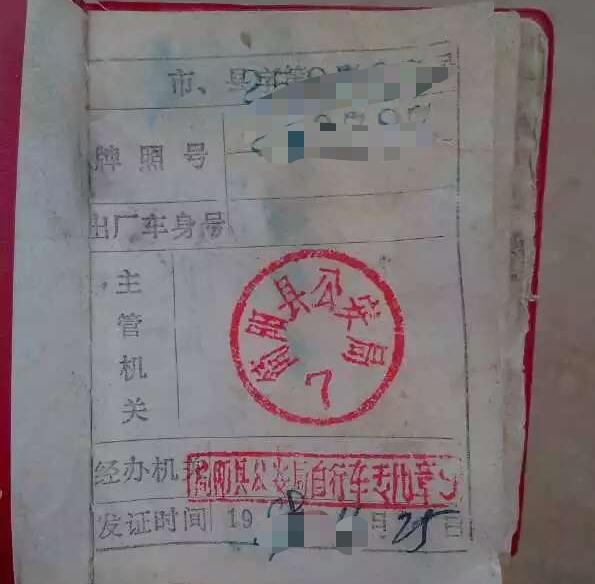 市、县字第
牌照号
出厂车身号
主管机关
揭阳县公安局
7
经办机
揭阳县公安局自行车专用章
发证时间 19 月25日